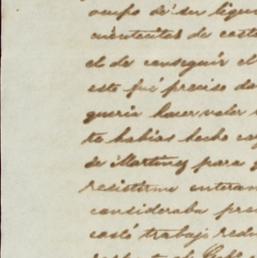 ocupo de su liqui
cuentecitas de caste
el de conseguir el
esto fué preciso da
queria hacer valer
te habias hecho car
de Martinez para q
resistirme enteram
consideraba pre
costó trabajo redu